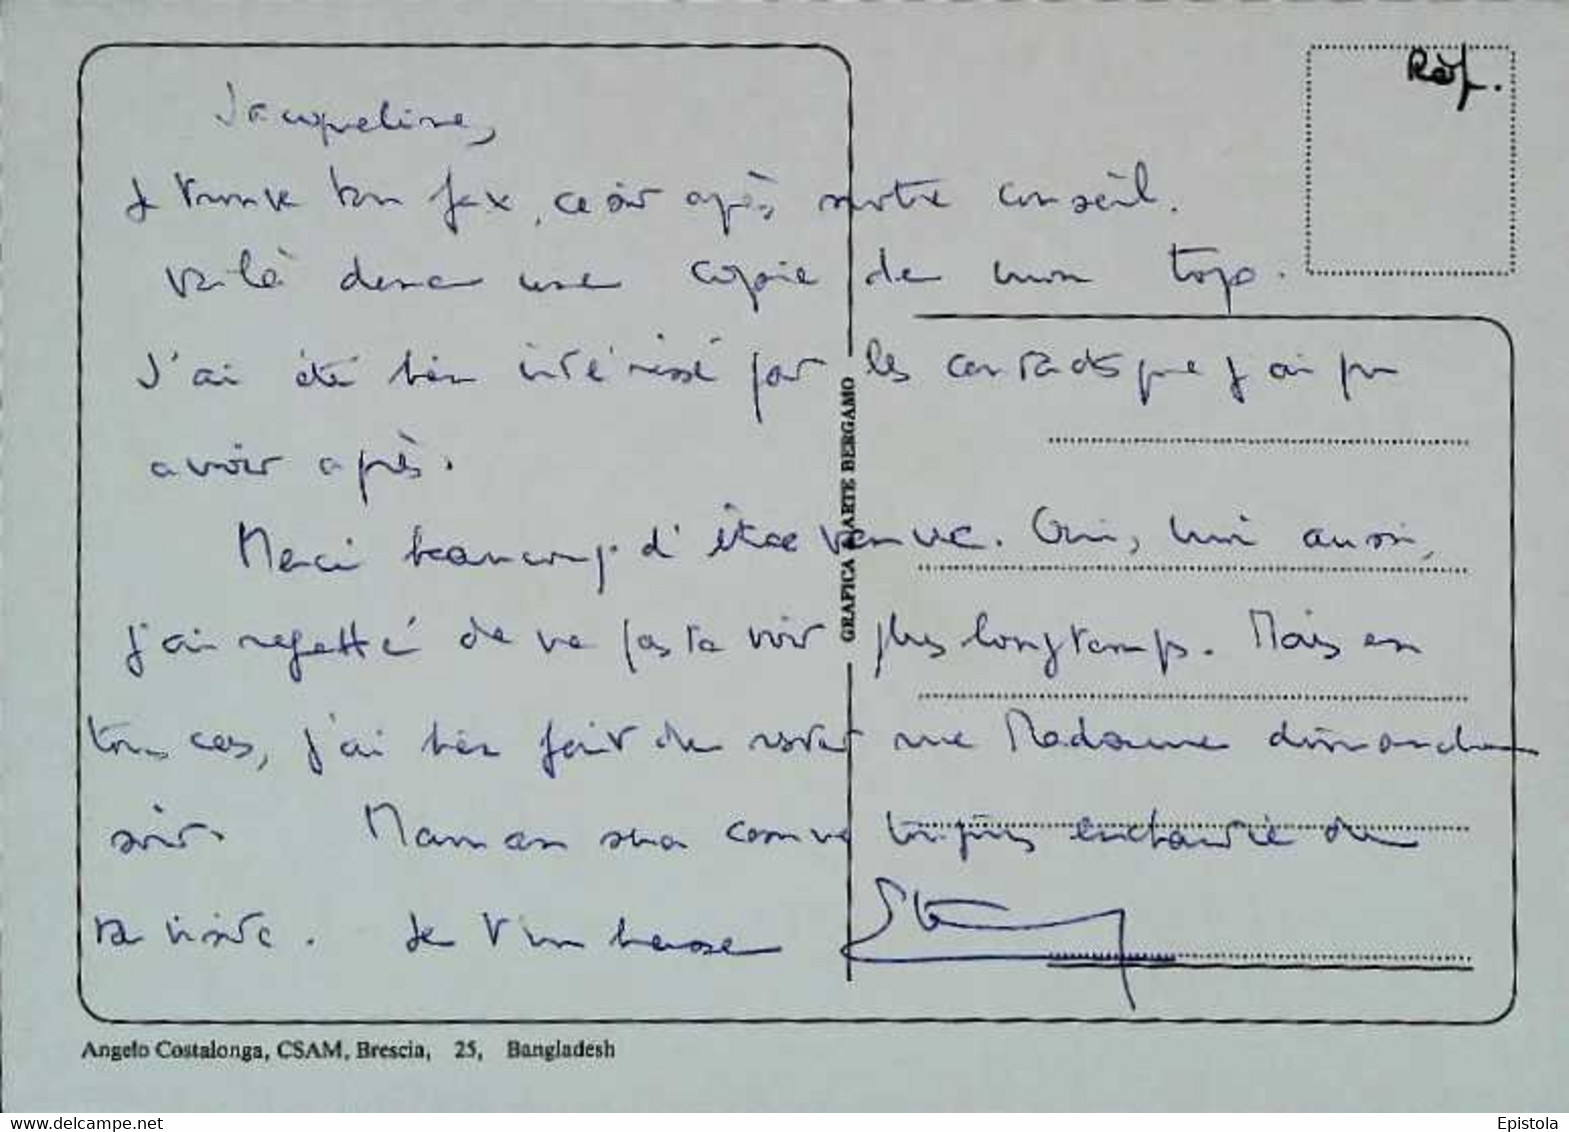 Réf.
Jacqueline,
Je trouve ton fax, ce soir après notre conseil.
Voilà donc une copie de mon topo.
J'ai été bien intéressé par les contacts que j'ai pu
avoir après.
Merci beaucoup d'être venue. Oui, moi aussi,
j'ai regretté de ne pas te voir plus longtemps. Mais en
tous cas, j'ai bien fait de
Madame dimanche
soir. Maman sera comme toujours enchantée de
ta visite. Je t'embrasse
GRAFICA E ARTE BERGAMO
Angelo Costalonga, CSAM, Brescia, 25, Bangladesh
www.delcampe.net
Epistola